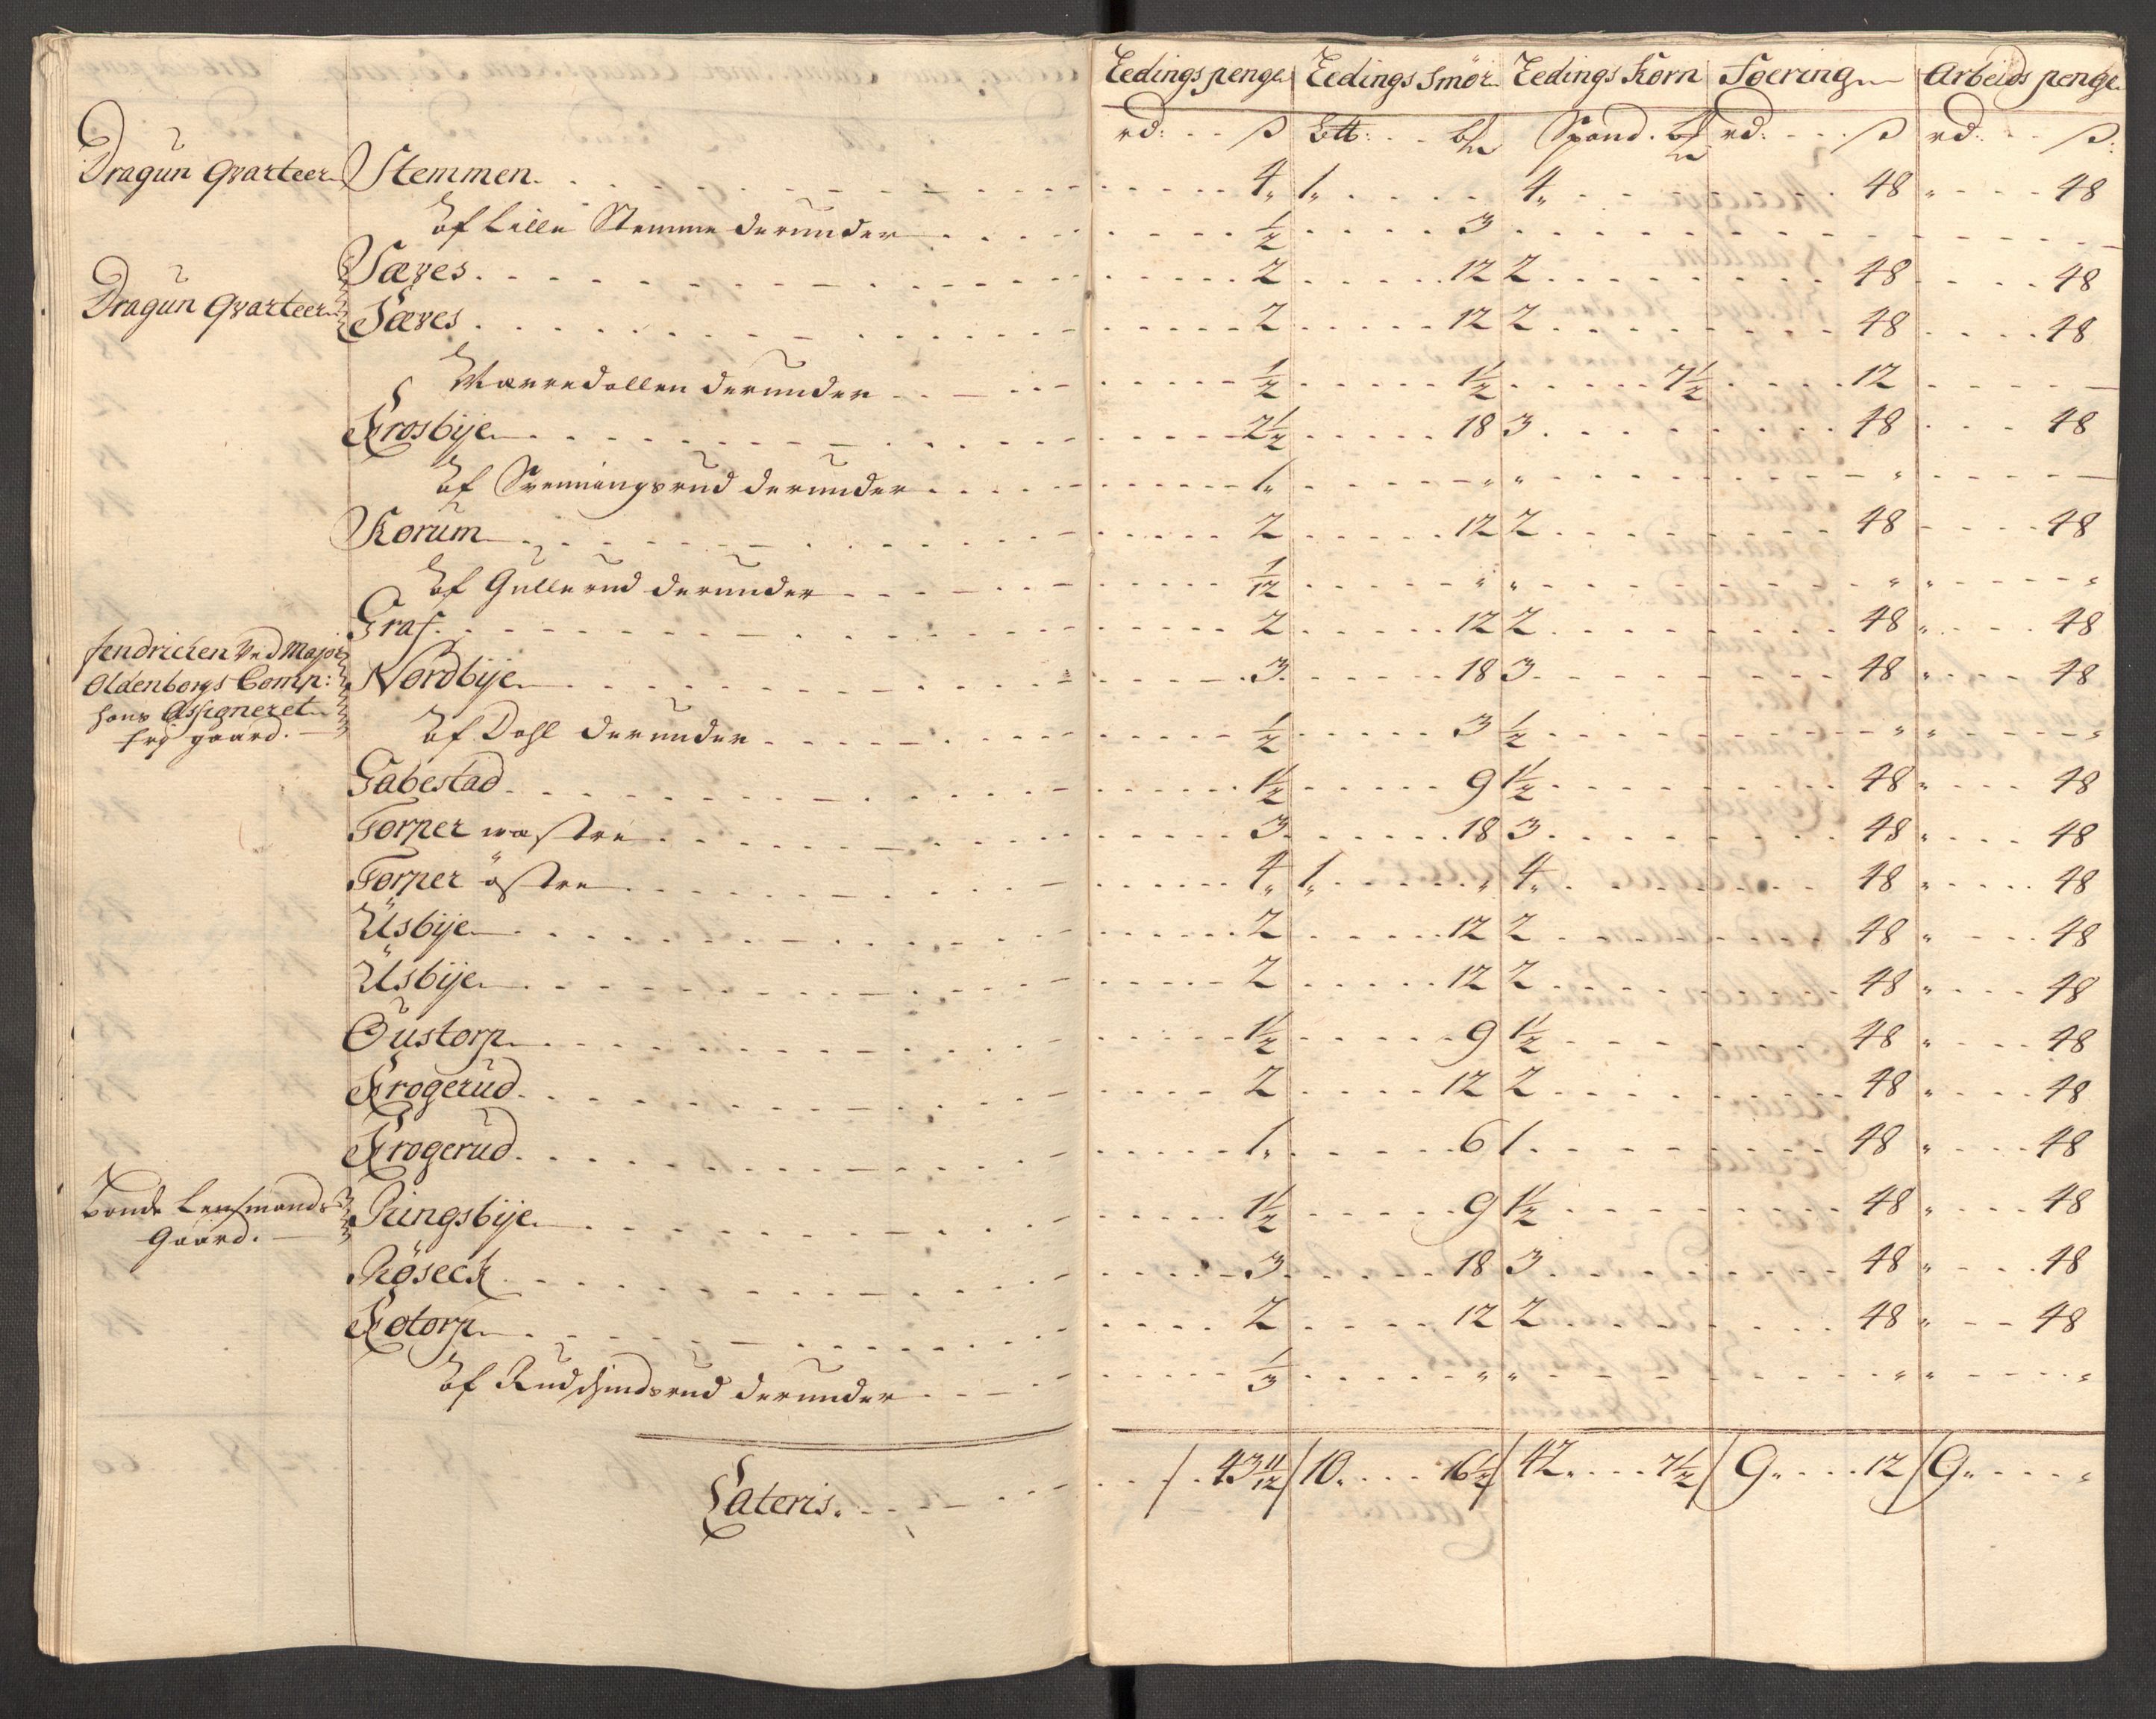 Leedings penge Leedings Smör Leedings Korn Foering Arbeids penge
rd: ß Btt: Spand. rd: ß rd: ß:
Dragun Qvarteer Stemmen 4 „ 1 „ 4 „ 48 „ 48
Af Lille Stemme derunder ½ 3
Sæves 2 12 2 48 48
Dragun Qvarteer Sæves 2 12 2 48 48
derunder ½ 1½ 7½ 12
Krosbije 2½ 18 3 48 48
Af Svenningsrud derunder 1 „ „ „ „
Korum 2 12 2 48 48
Af Gullerud derunder 1/12 „ „ „ „ „
Graf 2 12 2 48 „ 48
fendrichen Ved Major
Oldenborgs Comp: Nordbije 3 18 3 48 „ 48
hans Assigneret
frj gaard. Af Dahl derunder ½ 3 ½ „ „ „
Gabestad 1½ 9 1½ 48 „ 48
Torper wastre 3 18 3 48 „ 48
Torper östre 4 „ 1 „ „ 4 „ 48 „ 48
Üsbije 2 12 2 48 „ 48
Üsbije 2 12 2 48 „ 48
Oustorp 1½ 9 1½ 48 „ 48
Krogerud 2 12 2 48 „ 48
Krogerud 1 „ 6 1 48 „ 48
Bonde Lensmands
Gaard. Ringsbije 1½ 9 1½ 48 „ 48
Röseck 3 18 3 48 „ 48
Kotorp 2 12 2 48 „ 48
Af derunder ⅓ „ „ „ „ „
Lateris. 43 11/12 10 „ 16½ 42 „ 7½ 9 „ 12 9 „ „